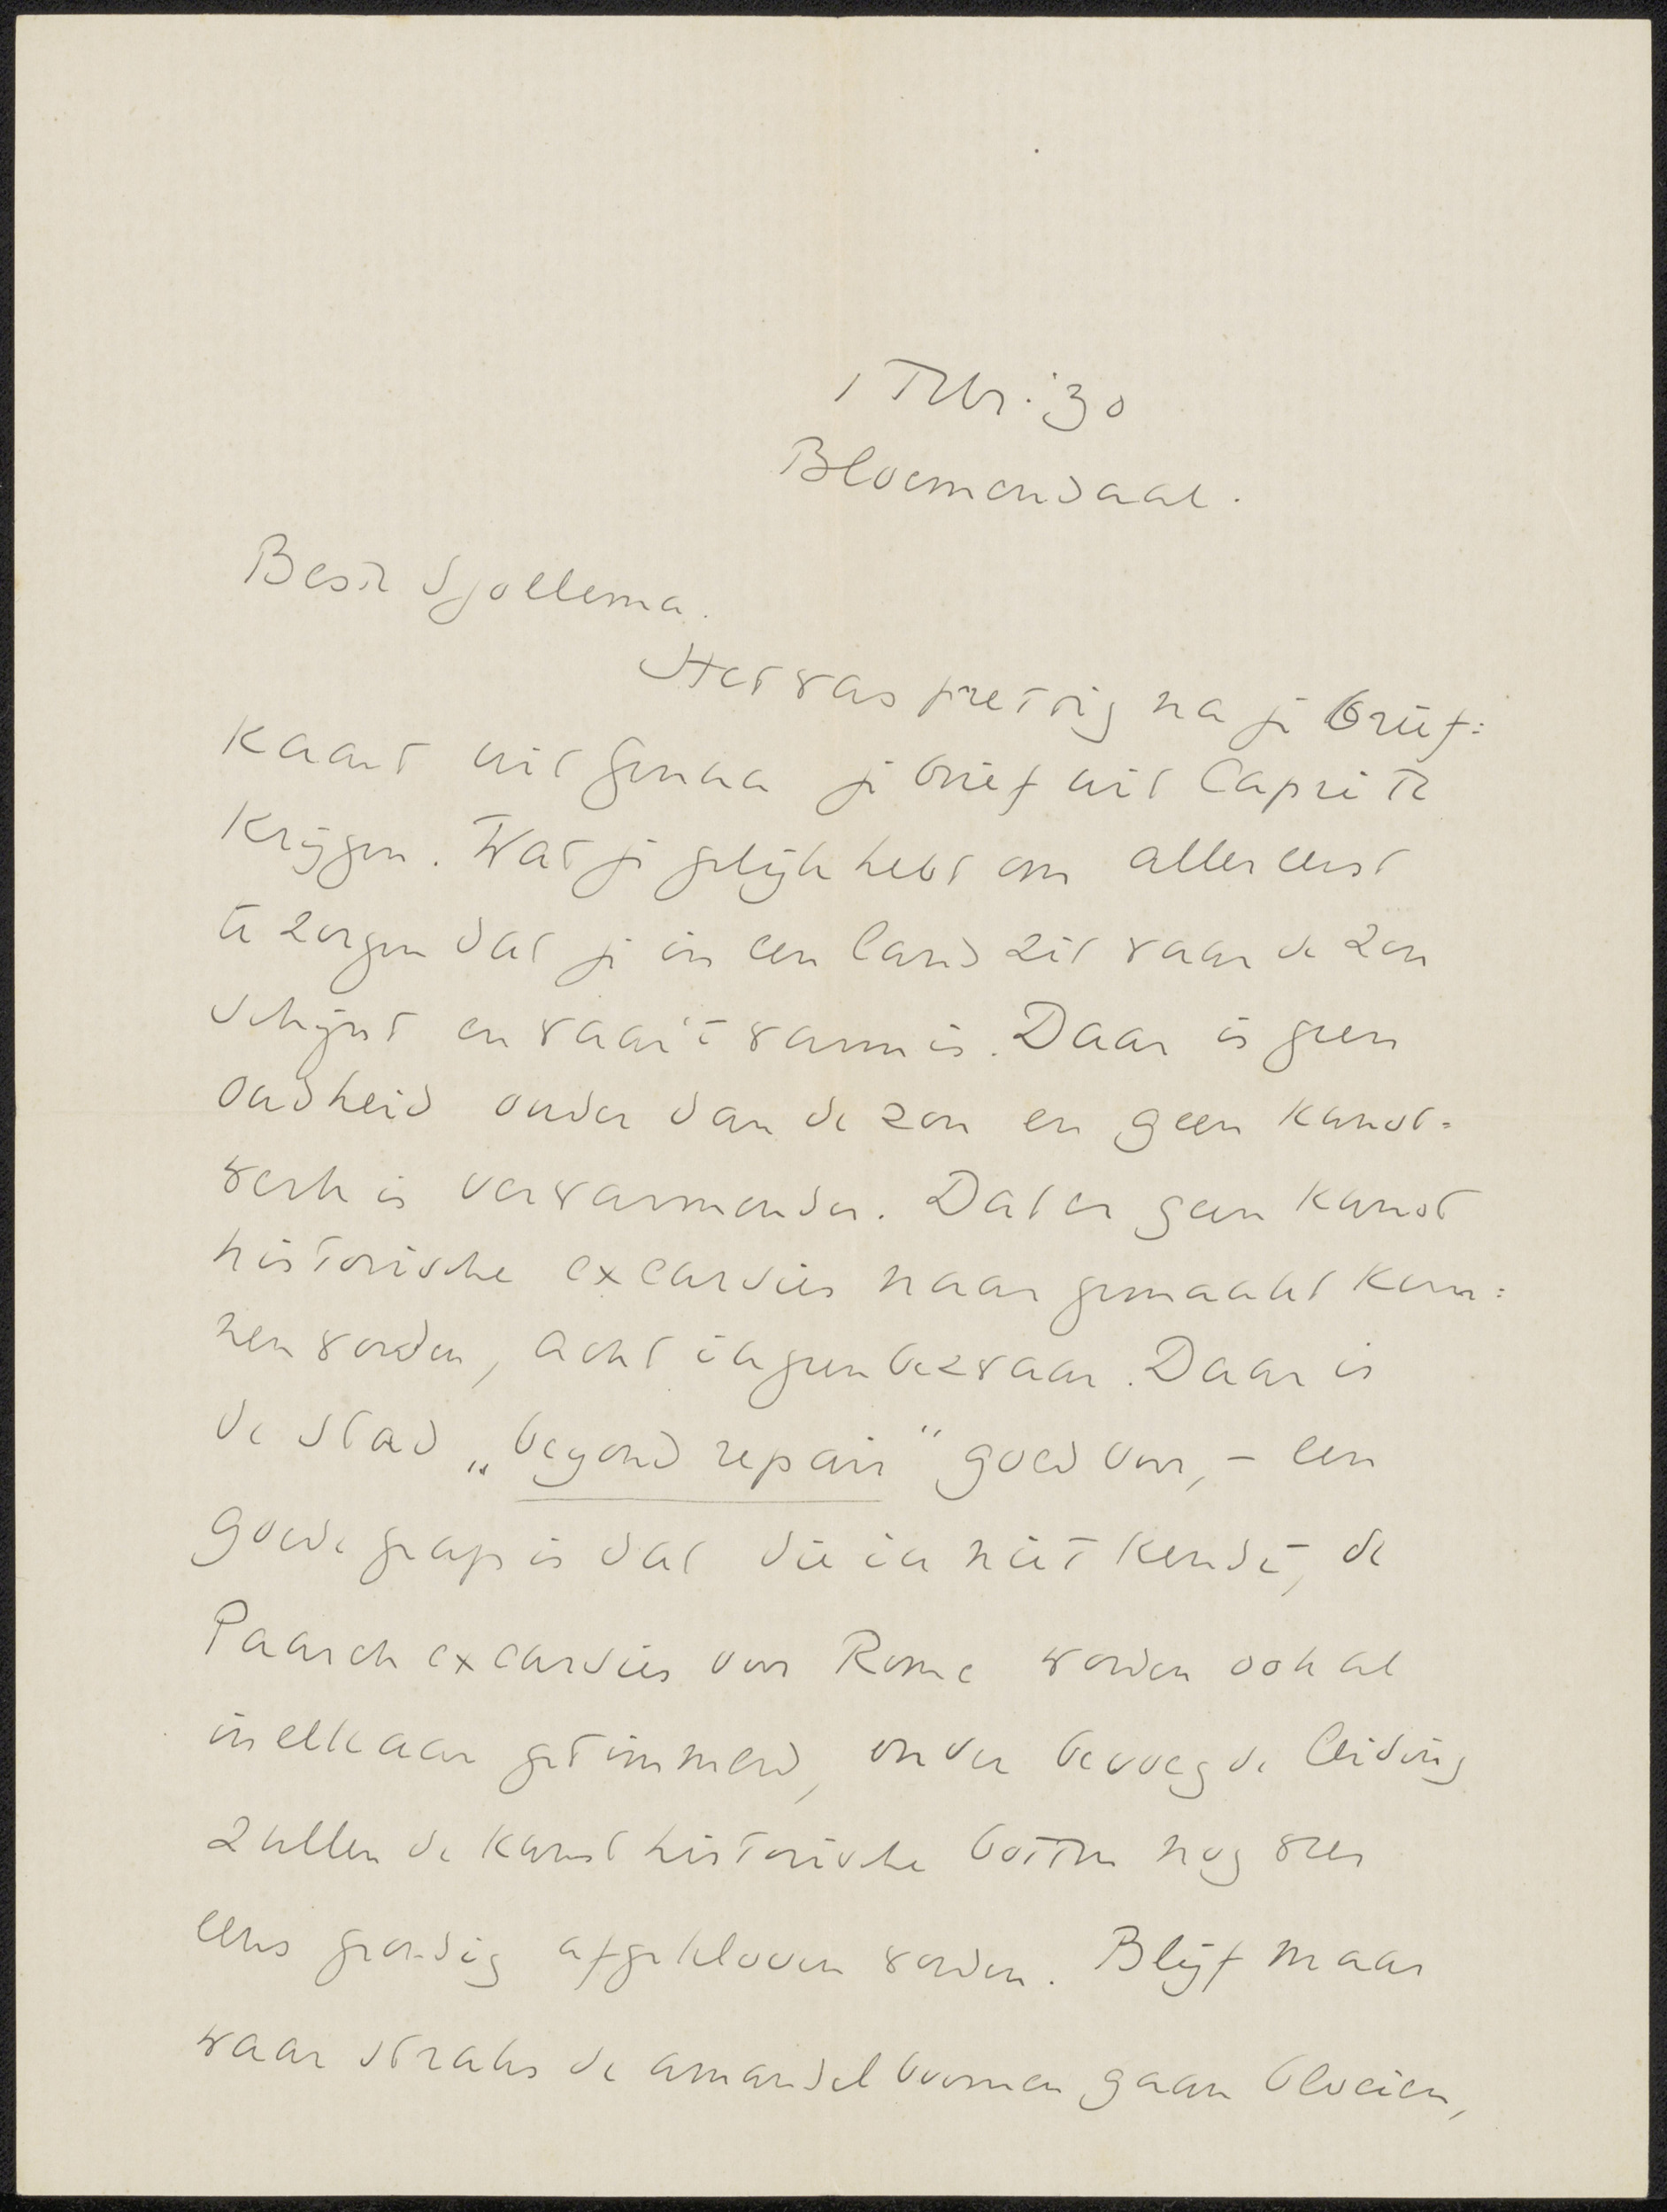 1 Febr. '30
Bloemendaal.
Beste Sjollema.
Het was prettig na je brief=
kaart uit Genua je brief uit Capri te
krijgen. Wat je gelijk hebt om allereerst
te zorgen dat je in een land zit waar de zon
schijnt en waar 't warm is. Daar is geen
oudheid ouder dan de zon en geen kunst=
werk is verwarmender. Dat er geen kunst
historische excursies naar gemaakt kun=
nen worden, acht ik geen bezwaar. Daar is
de stad „beyond repair" goed voor, – een
goede grap is dat die ik niet kende –, de
Paasch excursies voor Rome worden ook al
in elkaar getimmerd, onder bevoegde leiding
zullen de kunsthistorische botten nog weer
eens grondig afgekloven worden. Blijf maar
waar straks de amandelboomen gaan bloeien,